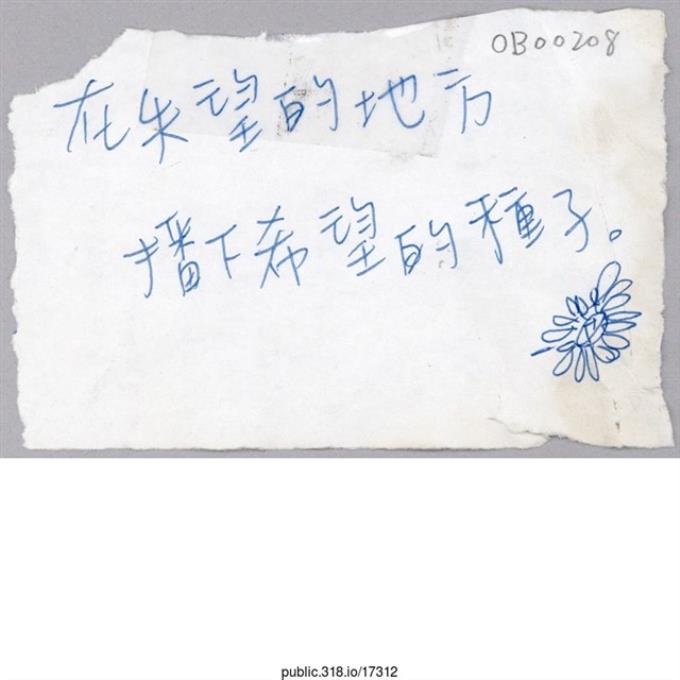 OB00208
在失望的地方
播下希望的種子。
public.318.io/17312